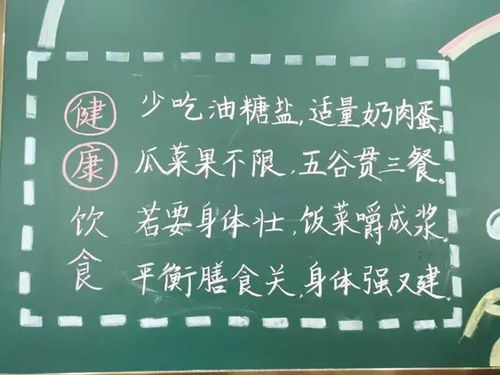 健康饮食
少吃油糖盐,适量奶肉蛋;
瓜菜果不限,五谷贯三餐。
若要身体壮,饭菜嚼成浆。
平衡膳食关,身体强又建。